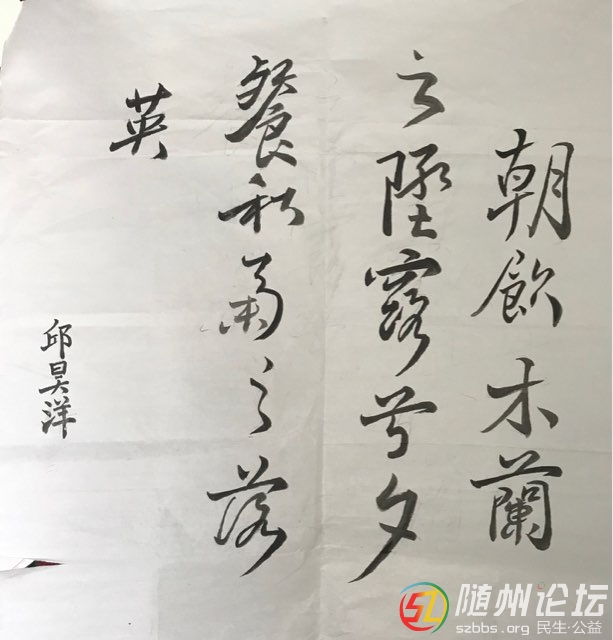 朝飲木蘭
之墜露兮夕
餐秋菊之落
英
邱昊洋
随州论坛
szbbs.org 民生·公益